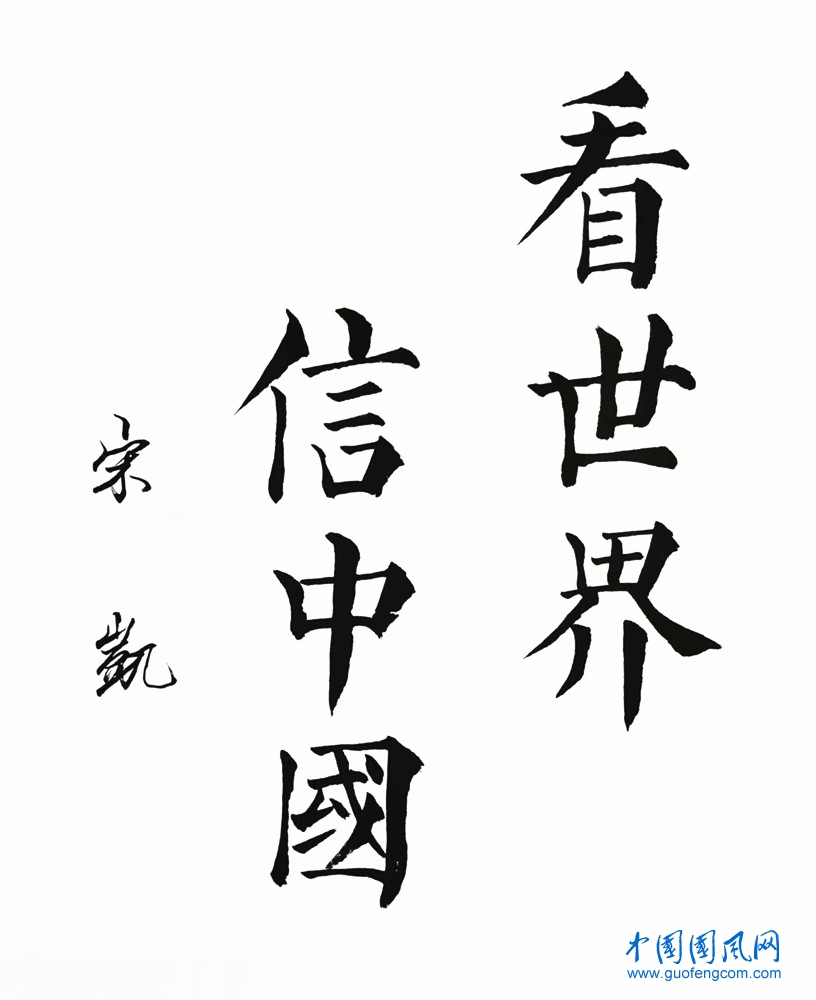 看世界
信中國
宋凱
中國國风网
www.guofengcom.com